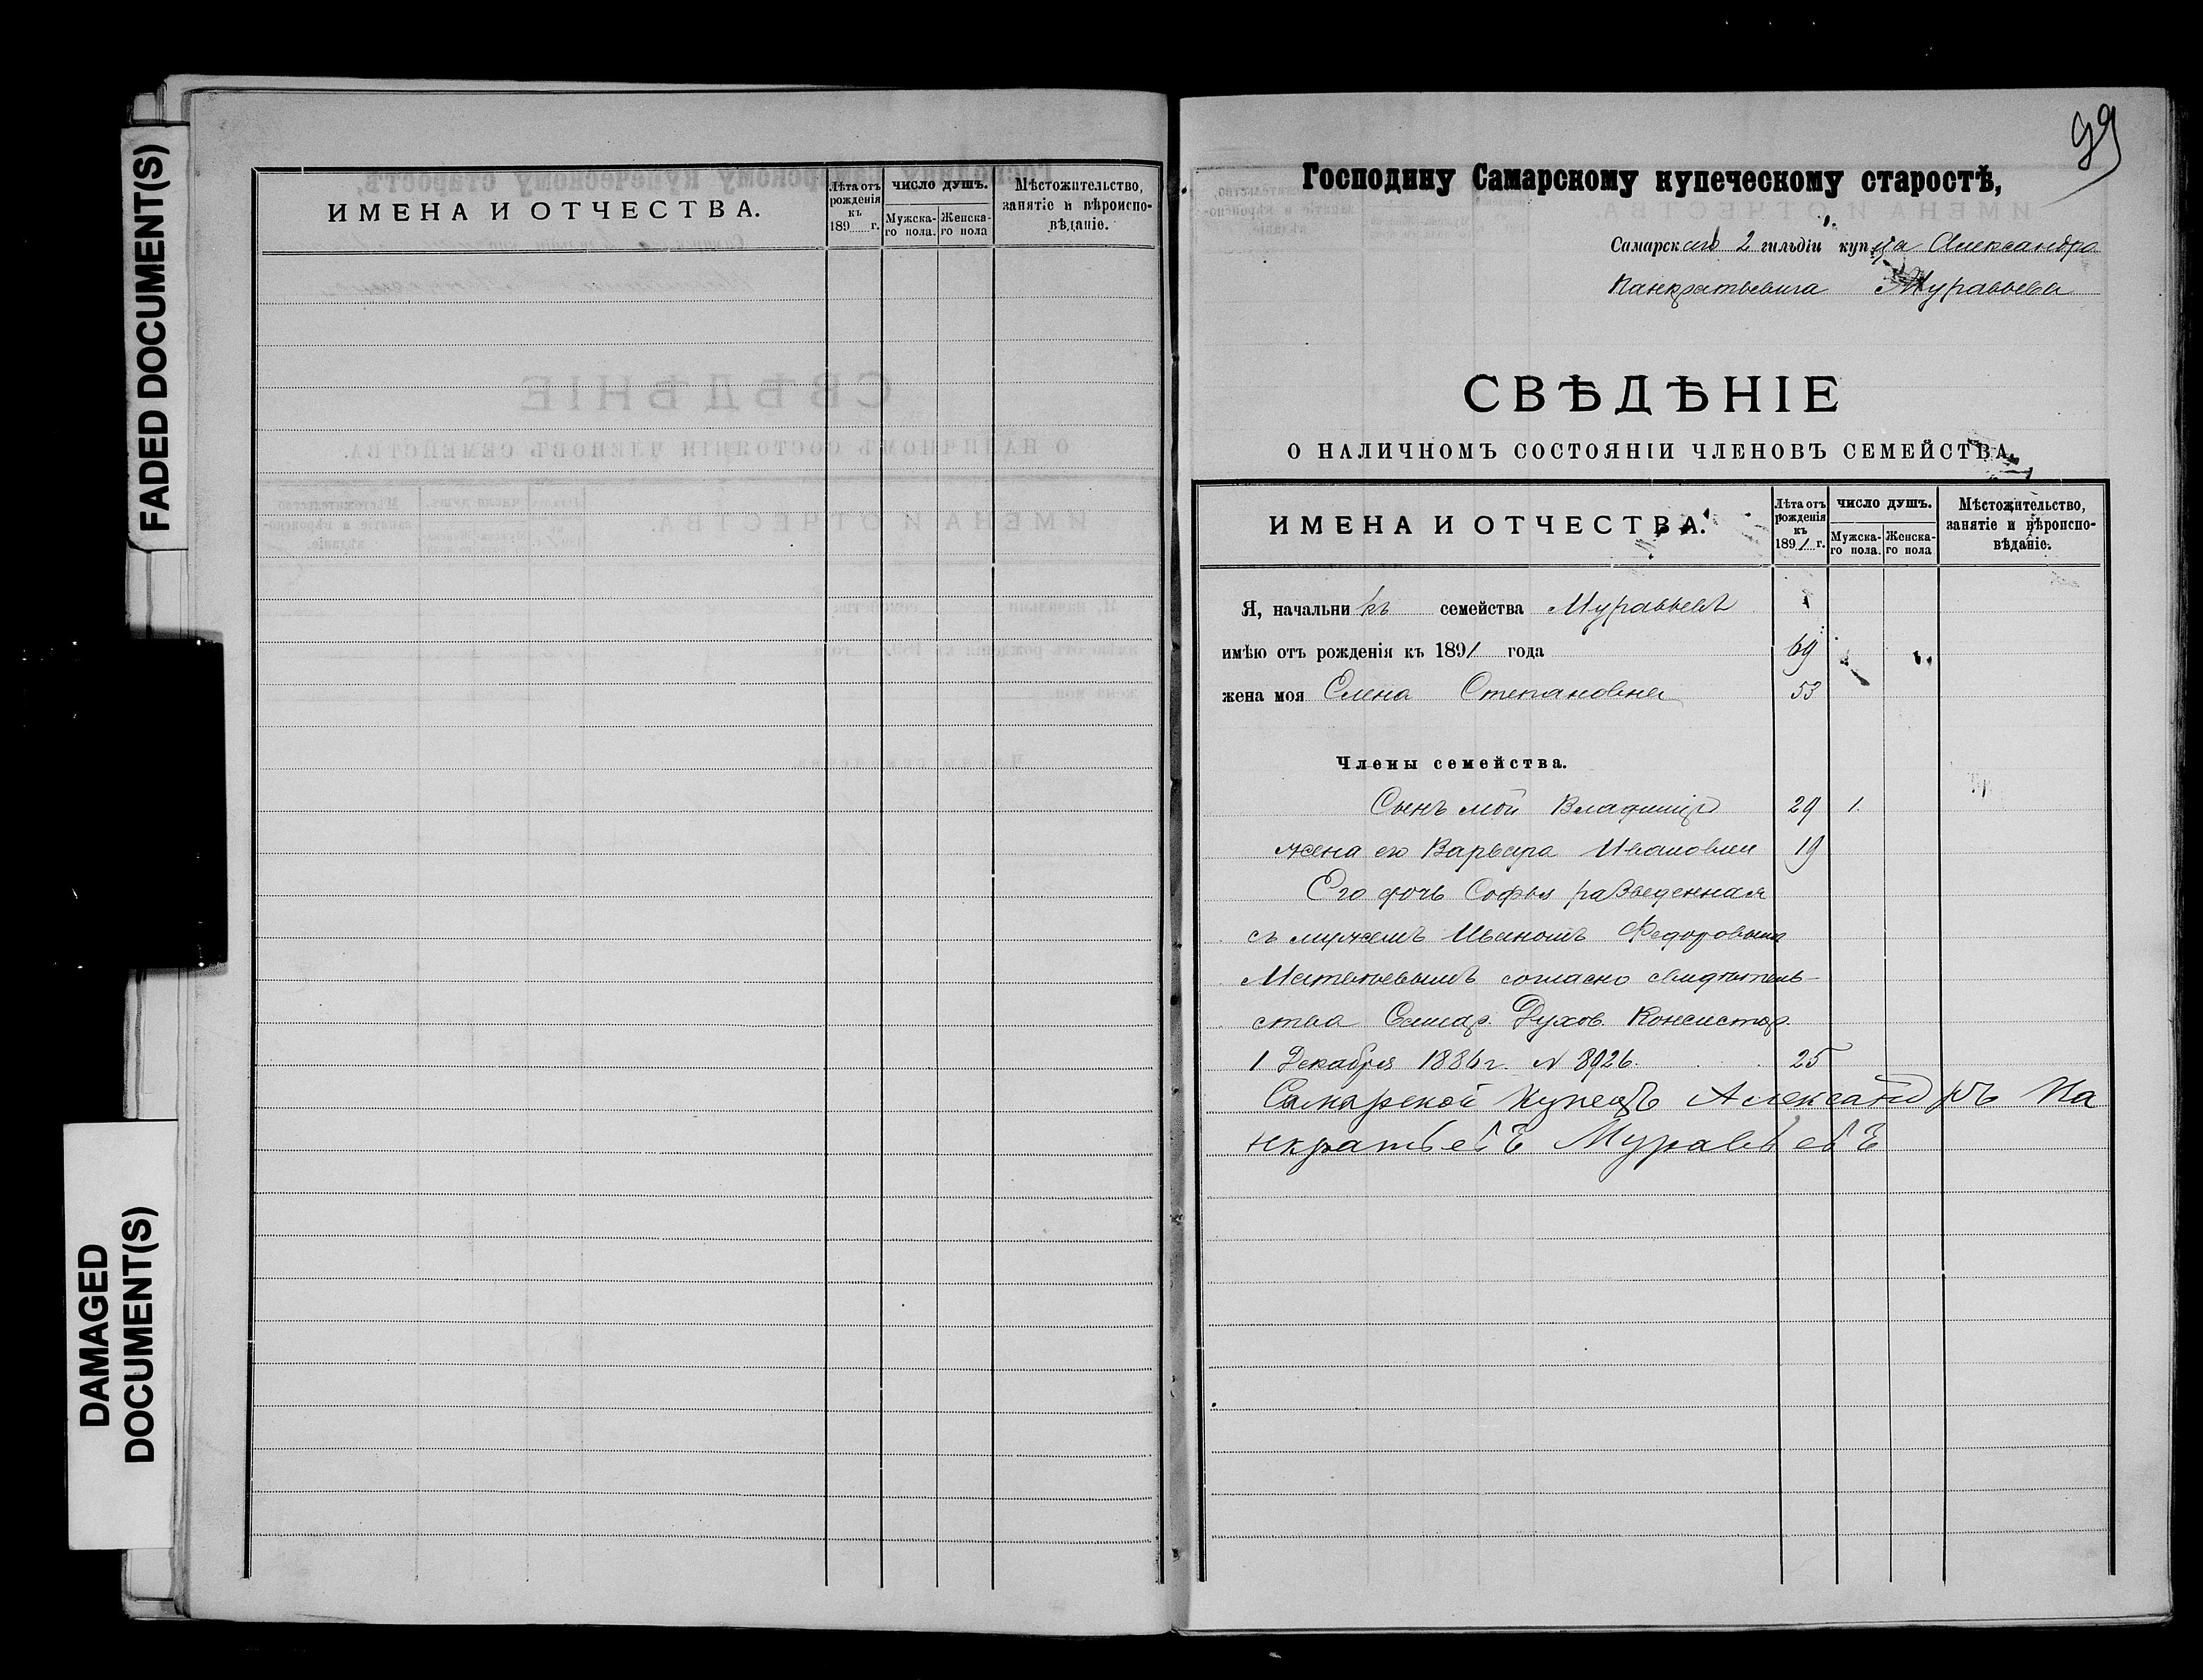 FADED DOCUMENT(S)
DAMAGED
DOCUMENT(S)
ИМЕНА И ОТЧЕСТВА.
Лѣта отъ рожденія къ 189 г.
ЧИСЛО ДУШЪ.
Мужска-го пола.
Женска-го пола
Мѣстожительство, занятіе и вѣроиспо-вѣданіе.
99
Господину Самарскому купеческому старостѣ,
Самарскаго 2 гильдіи купца Александра
Панкратьевича Муравьева
СВѢДѢНІЕ
О НАЛИЧНОМЪ СОСТОЯНІИ ЧЛЕНОВЪ СЕМЕЙСТВА.
ИМЕНА И ОТЧЕСТВА.
Лѣта отъ рожденія къ 1891 г.
ЧИСЛО ДУШЪ.
Мужска-го пола.
Женска-го пола
Мѣстожительство, занятіе и вѣроиспо-вѣданіе.
Я, начальникъ семейства Муравьевъ
имѣю отъ рожденія къ 1891 года 69
жена моя Елена Степановна 53
Члены семейства.
Сынъ мой Владиміръ 29 1.
жена его Варвара Ивановна 19
Его дочь Софья разведенная
съ мужемъ Иваномъ Федоровымъ
Матвѣевымъ согласно свидѣтель-
ства Самар. Духов. Консистор.
1 Декабря 1886 г. N 8926. 25
Самарской Купецъ Александръ Па
нкратьевъ Муравьевъ